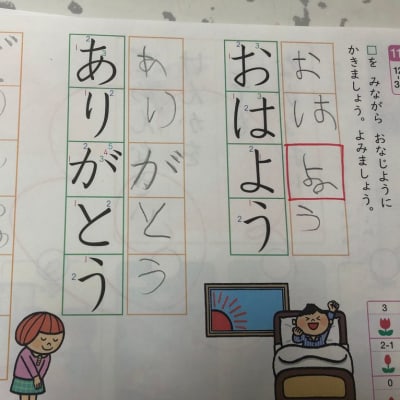 11
12
3
□を みながら おなじように
かきましょう。よみましょう。
おはよう
おはよう
ありがとう
ありがとう
3
2-1
0